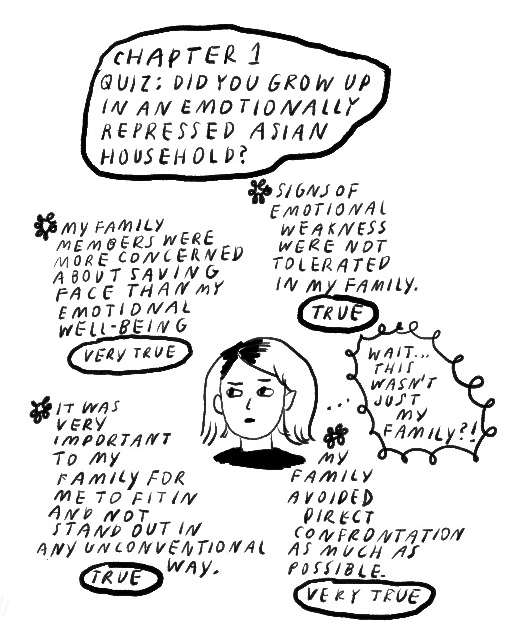 CHAPTER 1
QUIZ: DID YOU GROW UP
IN AN EMOTIONALLY
REPRESSED ASIAN
HOUSEHOLD?
MY FAMILY
MEMBERS WERE
MORE CONCERNED
ABOUT SAVING
FACE THAN MY
EMOTIONAL
WELL-BEING
VERY TRUE
SIGNS OF
EMOTIONAL
WEAKNESS
WERE NOT
TOLERATED
IN MY FAMILY.
TRUE
WAIT...
THIS
WASN'T
JUST
MY
FAMILY?!
IT WAS
VERY
IMPORTANT
TO MY
FAMILY FOR
ME TO FIT IN
AND NOT
STAND OUT IN
ANY UNCONVENTIONAL
WAY.
TRUE
MY
FAMILY
AVOIDED
DIRECT
CONFRONTATION
AS MUCH AS
POSSIBLE.
VERY TRUE